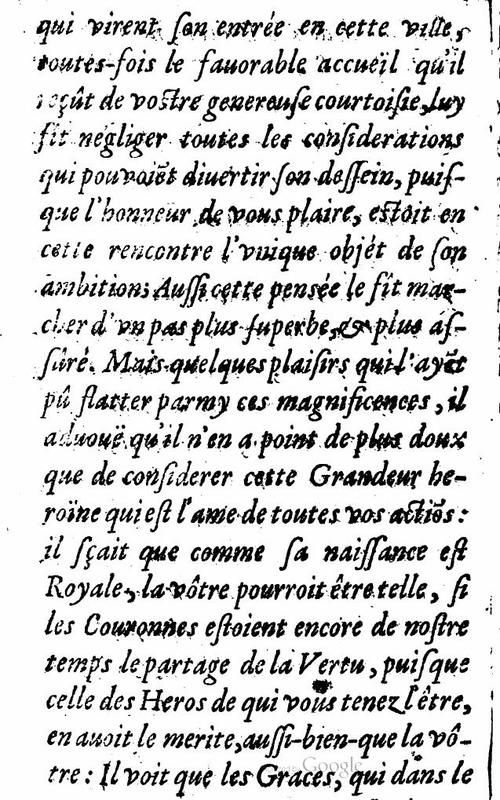 qui virent son entrée en cette ville,
toutes-fois le fauorable accueïl qu'il
reçût de vostre genereuse courtoisie, luy
fit negliger toutes les considerations
qui pouvoiẽt diuertir son dessein, puis-
que l'honneur de vous plaire, estoit en
cette rencontre l'vnique objét de son
ambition: Aussi cette pensée le fit mar-
cher d'vn pas plus superbe, & plus as-
sûré. Mais quelques plaisirs qui l'ayẽt
pû flatter parmy ces magnificences, il
aduouë qu'il n'en a point de plus doux
que de considerer cette Grandeur he-
roïne qui est l'ame de toutes vos actiõs:
il sçait que comme sa naissance est
Royale, la vôtre pourroit être telle, si
les Couronnes estoient encore de nostre
temps le partage de la Vertu, puisque
celle des Heros de qui vous tenez l'être,
en auoit le merite, aussi-bien-que la vô-
tre: Il voit que les Graces, qui dans le
Google